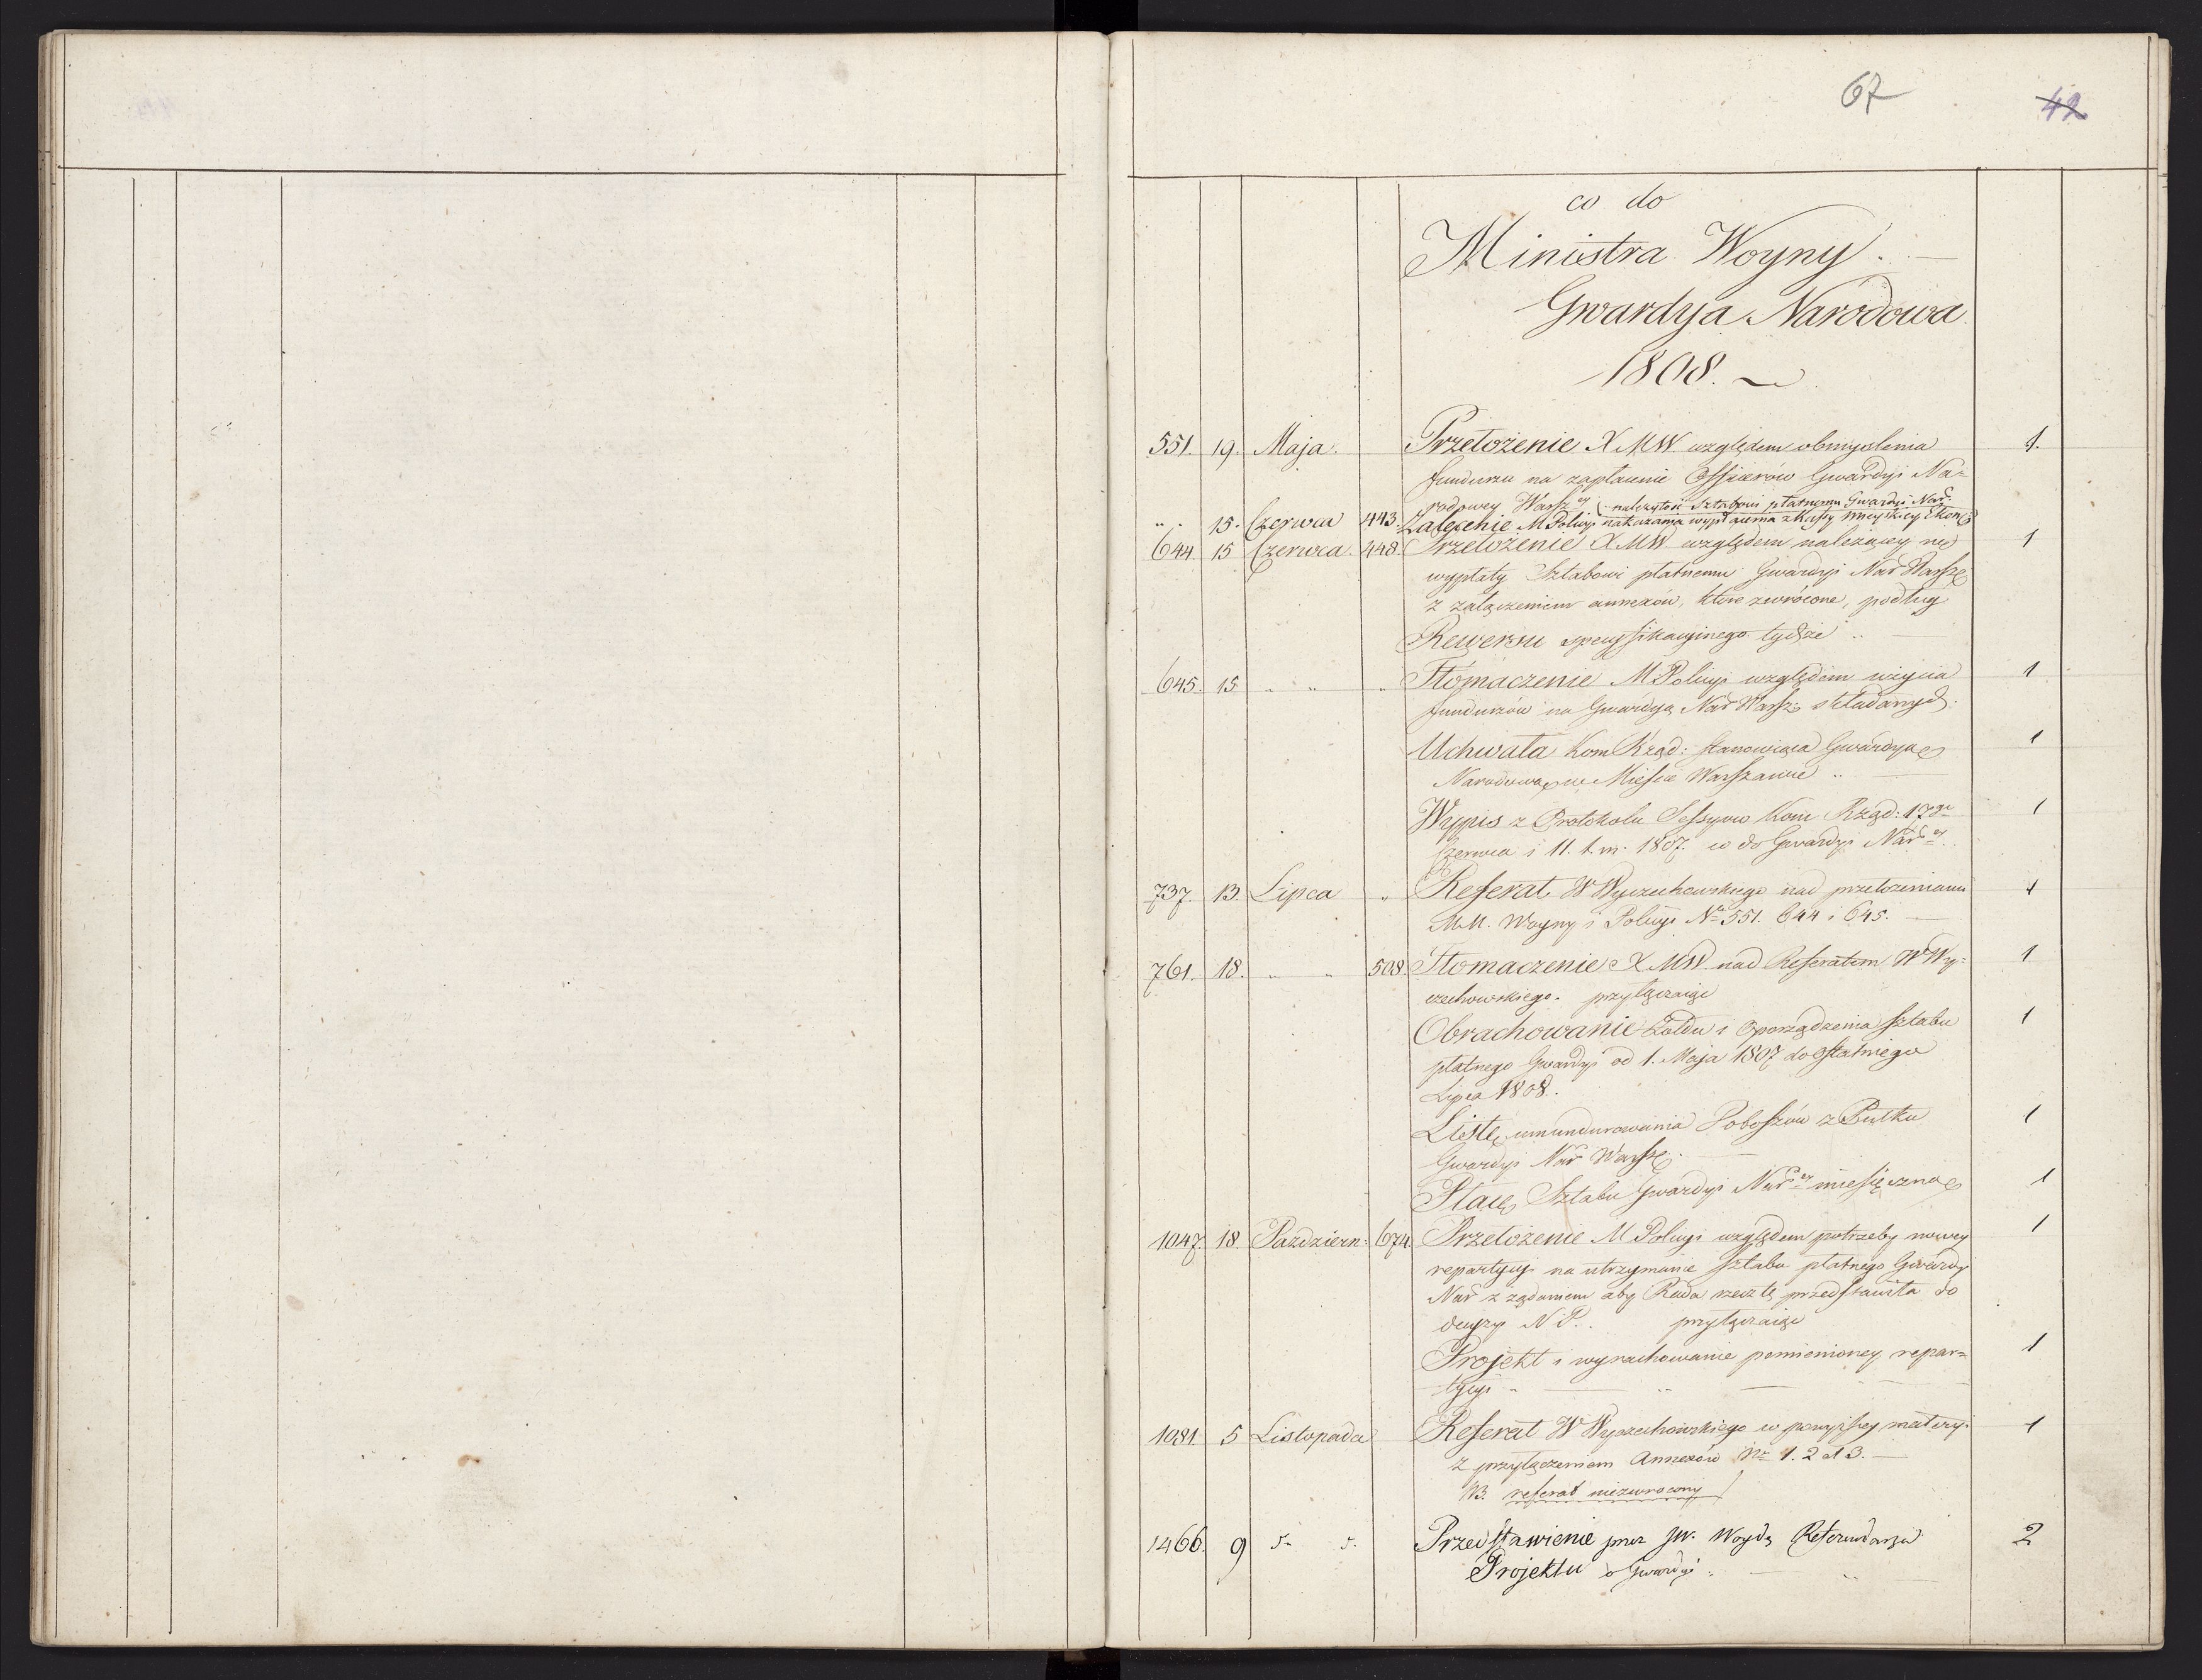 67 42
co do
Ministra Woyny. —
Gwardya Narodowa
1808.
551. 19. Maja. Przełożenie X MW. względem obmyslenia 1.
funduszu na zapłacenie Officierów Gwardyi Na=
rodowey Warsz ey (należytość Sztabowi płatnemu Gwardyi Nar:
" " 15. Czerwca 443. Zalecenie M Policyi nakazania wypłacenia z Kassy mieyskiey Ekon:
644 15 Czerwca. 448. Przełożenie X MW względem należącey się 1
wypłaty Sztabowi płatnemu Gwardyi Nar Warsz:
z załączeniem annexów, które zwrócone, podług
Rewersu specyfikacyinego tychże "
645. 15. " " " Tłómaczenie M Policyi względem użycia 1
funduszów na Gwardyą Nar Warsz: składanych.
Uchwała Kom Rząd: stanowiąca Gwardyą 1
Narodową w Mieście Warszawie "
Wypis z Protokołu Sessyów Kom Rząd: 17go 1
Czerwca i 11. t. m. 1807. co do Gwardyi Nar ey
737. 13. Lipca " Referat W Wyczechowskiego nad przełożeniami 1
MM. Woyny i Policyi No 551. 644 i 645. —
761. 18. " " 508 Tłomaczenie X MW. nad Referatem W Wy= 1
czechowskiego. przyłączaiąc
Obrachowanie Żołdu i Oporządzenia sztabu 1
płatnego Gwardyi od 1. Maja 1807 do ostatniego
Lipca 1808.
Listę umundurowania Doboszów z Pułku 1
Gwardyi Nar Warsz:
Płacę Sztabu Gwardyi Nar ey miesięczną 1
1047. 18. Październ: 674. Przełożenie M Policyi względem potrzeby nowey 1
repartycyi na utrzymanie sztabu płatnego Gwardy
Nar z żądaniem aby Rada rzecz tę przedstawiła do
decyzyi N P. przyłączaiąc
Projekt i wyrachowanie pomienioney repar= 1
tycyi "
1081. 5 Listopada Referat W Wyczechowskiego w powyższey materyi 1
z przyłączeniem Annexów No 1. 2 et 3. —
NB. referat niezwrocony
1466. 9 Przedstawienie przez JW. Woydę Referendarza 2
Projektu o Gwardyi